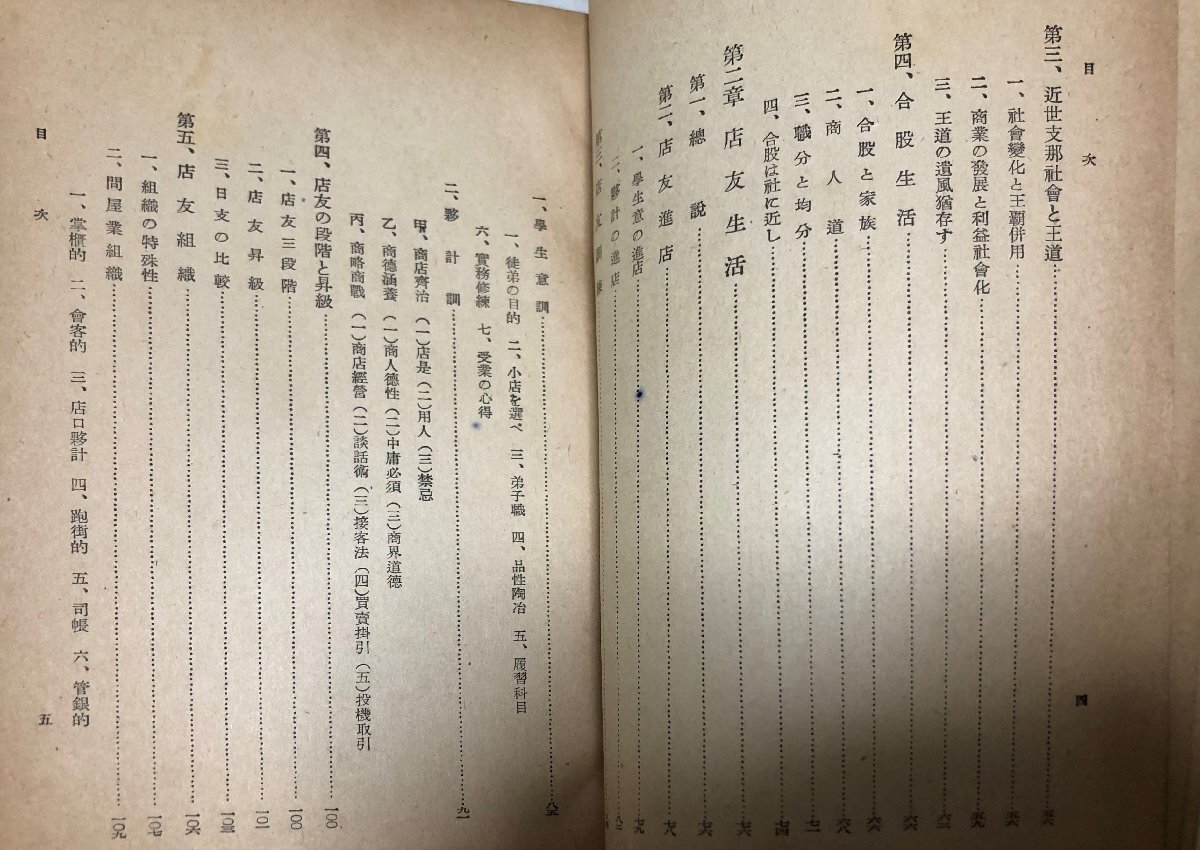 目次 四
第三、近世支那社會と王道……五六
一、社會變化と王覇併用……五六
二、商業の發展と利益社會化……五九
三、王道の遺風猶存す……六三
第四、合股生活……六六
一、合股と家族……六六
二、商人道……六八
三、職分と均分……七一
四、合股は社に近し……七四
第二章 店友生活……七六
第一、總說……七六
第二、店友進店……七八
一、學生意の進店……七九
二、夥計の進店……八二
一、學生意訓……八五
一、徒弟の目的 二、小店を選べ 三、弟子職 四、品性陶冶 五、履習科目
六、實務修練 七、受業の心得
二、夥計訓……九一
甲、商店齊治 (一)店是 (二)用人 (三)禁忌
乙、商德涵養 (一)商人德性 (二)中庸必須 (三)商界道德
丙、商略商戰 (一)商店經營 (二)談話術 (三)接客法 (四)買賣掛引 (五)投機取引
第四、店友の段階と昇級……一〇〇
一、店友三段階……一〇〇
二、店友昇級……一〇一
三、日支の比較……一〇三
第五、店友組織……一〇六
一、組織の特殊性……一〇七
二、問屋業組織……一〇九
一、掌櫃的 二、會客的 三、店口夥計 四、跑街的 五、司帳 六、管銀的
目次 五